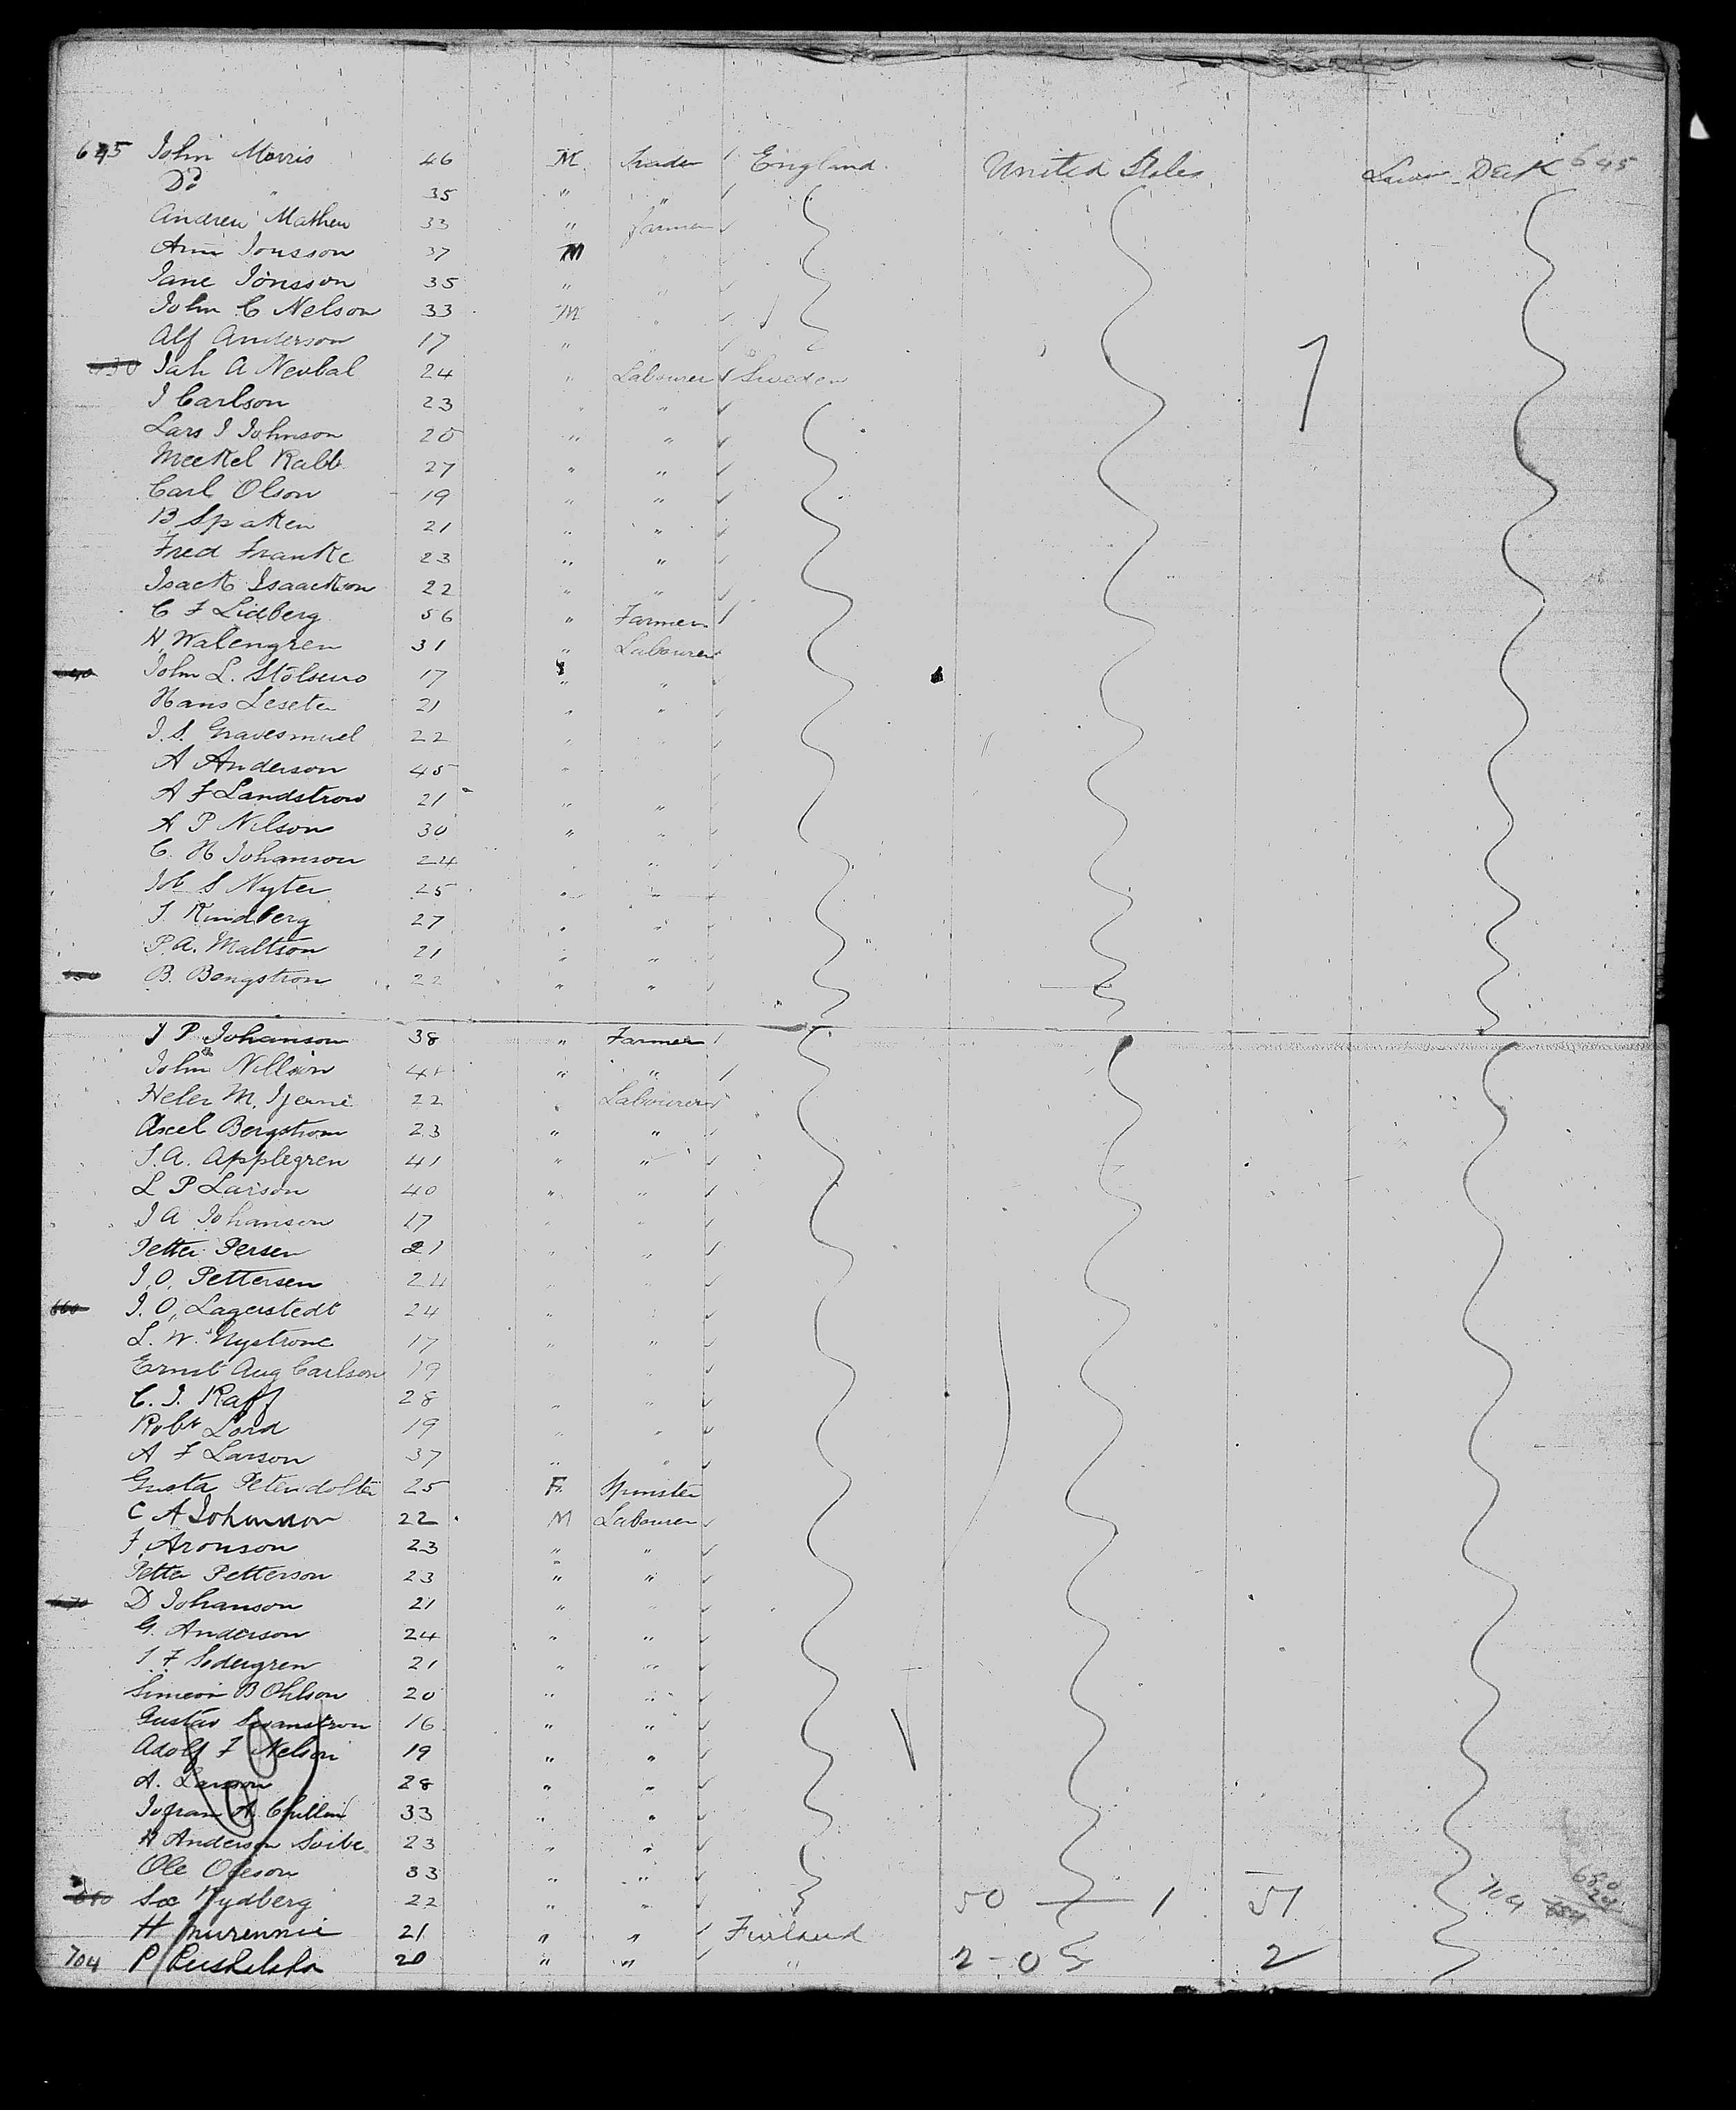 645 John Morris 46 M Trader England United States Lower Deck 645
Do " 35 " "
Andrew Mathew 33 " farmer
Ann Jonsson 37 M
Jane Jonsson 35 "
John C Nelson 33 M "
Alf Anderson 17 " "
630 Joh A Neubal 24 " Labourer Sweden
J Carlson 23 " "
Lars J Johnson 20 " "
Meekel Rabb 27 " "
Carl Olson 19 " "
B Spaken 21 " "
Fred Franke 23 " "
Isack Isaackson 22 " "
C F Lidberg 56 " Farmer
N Walengren 31 " Labourer
John L. 17 " "
Hans Leseter 21 " "
J. S. Gravesmuel 22 " "
A Anderson 45 "
A F Landstrow 21 " "
A P Nilson 30 " "
C. H Johanson 24 " "
Job S Nyter 25 " "
J. Kindberg 27 " "
P. A. Maltson 21 " "
650 B. Bengstron 22 " "
J P Johanson 38 " Farmer
John Nillson " "
Heler M. 22 " Labourer
Axel Bergstrom 23 " "
J. A. Applegren 41 " "
L P Larson 40 " "
J A Johanson 17 " "
Petter Persen 21 " "
J. O. Pettersen 24 " "
660 J. O. Lagerstedt 24 " "
L. W. Nystrone 17 " "
Ernst Aug Carlson 19
C. J. Raff 28 " "
Robt Lord 19 " "
A F Larson 37 " "
Gusta 25 F Spinster
C A Johnnson 22 M Labourer
F. Aronson 23 " "
Petter Petterson 23 " "
670 D Johanson 21 " "
G. Anderson 24 " "
J. F. Sodergren 21 " "
Simeon B Ohlson 20 " "
Gustav Swanstron 16 " "
Adolf F Nelson 19 " "
A. Larson 28 " "
33 " "
H Anderson Svibe 23 " "
Ole Oleson 33 " "
680 Rydberg 22 " " 50 — 1 51 704 680 24
H 21 " " Finland
704 P 20 " " " 2 - 0 2